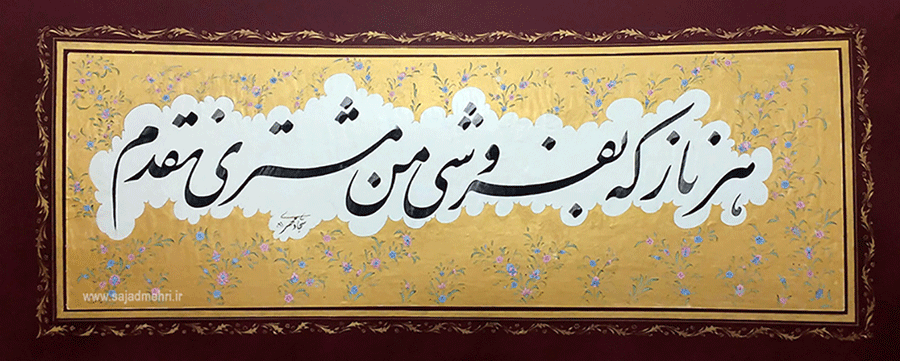 هر ناز که بفروشی من مشتری نقدم
سجاد مهری
www.sajadmehri.ir